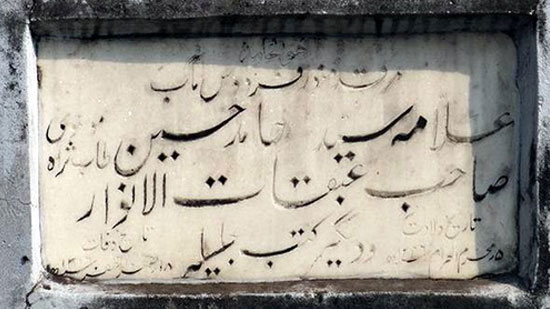 ھو العلیم
مرقد منور فردوس مآب
علامہ سید حامد حسین موسوی طاب ثراہ
صاحب عبقات الانوار
ودیگر کتب جلیلہ
تاریخ ولادت
۵ محرم الحرام
تاریخ وفات
۱۸ صفر